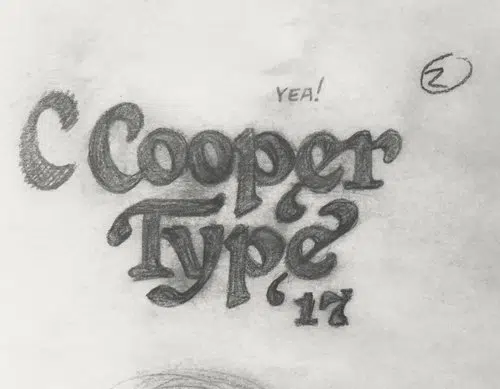 YEA!
C Cooper
Type
‘17